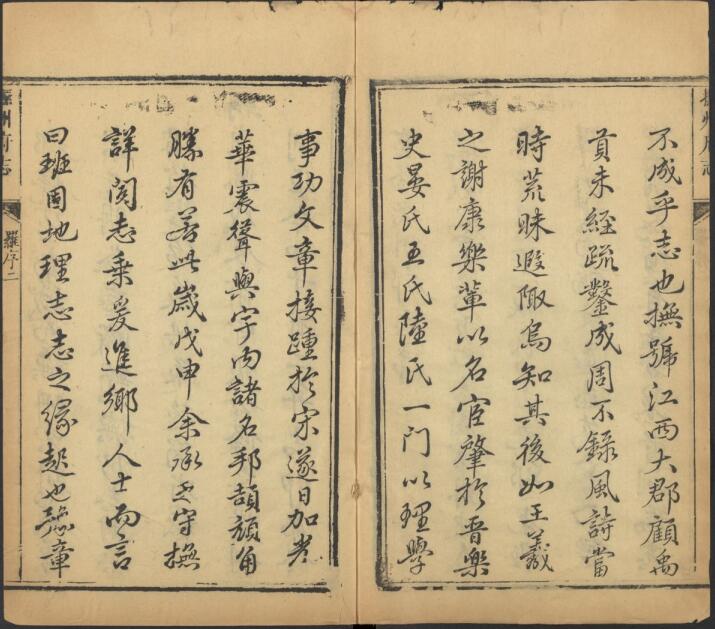 撫州府志
不成乎志也撫號江西大郡顧禹
貢未經疏鑿成周不錄風詩當
時荒昧遐陬烏知其後如王羲
之謝康樂輩以名宦肇於晋樂
史晏氏王氏陸氏一門以理學
事功文章接踵於宋遂日加光
華震聳與宇內諸名邦頡頏角
勝有若此歲戊申余承乏守撫
詳閱志乘爰進鄉人士而言
曰班固地理志志之緣起也豫章
撫州府志
羅序二